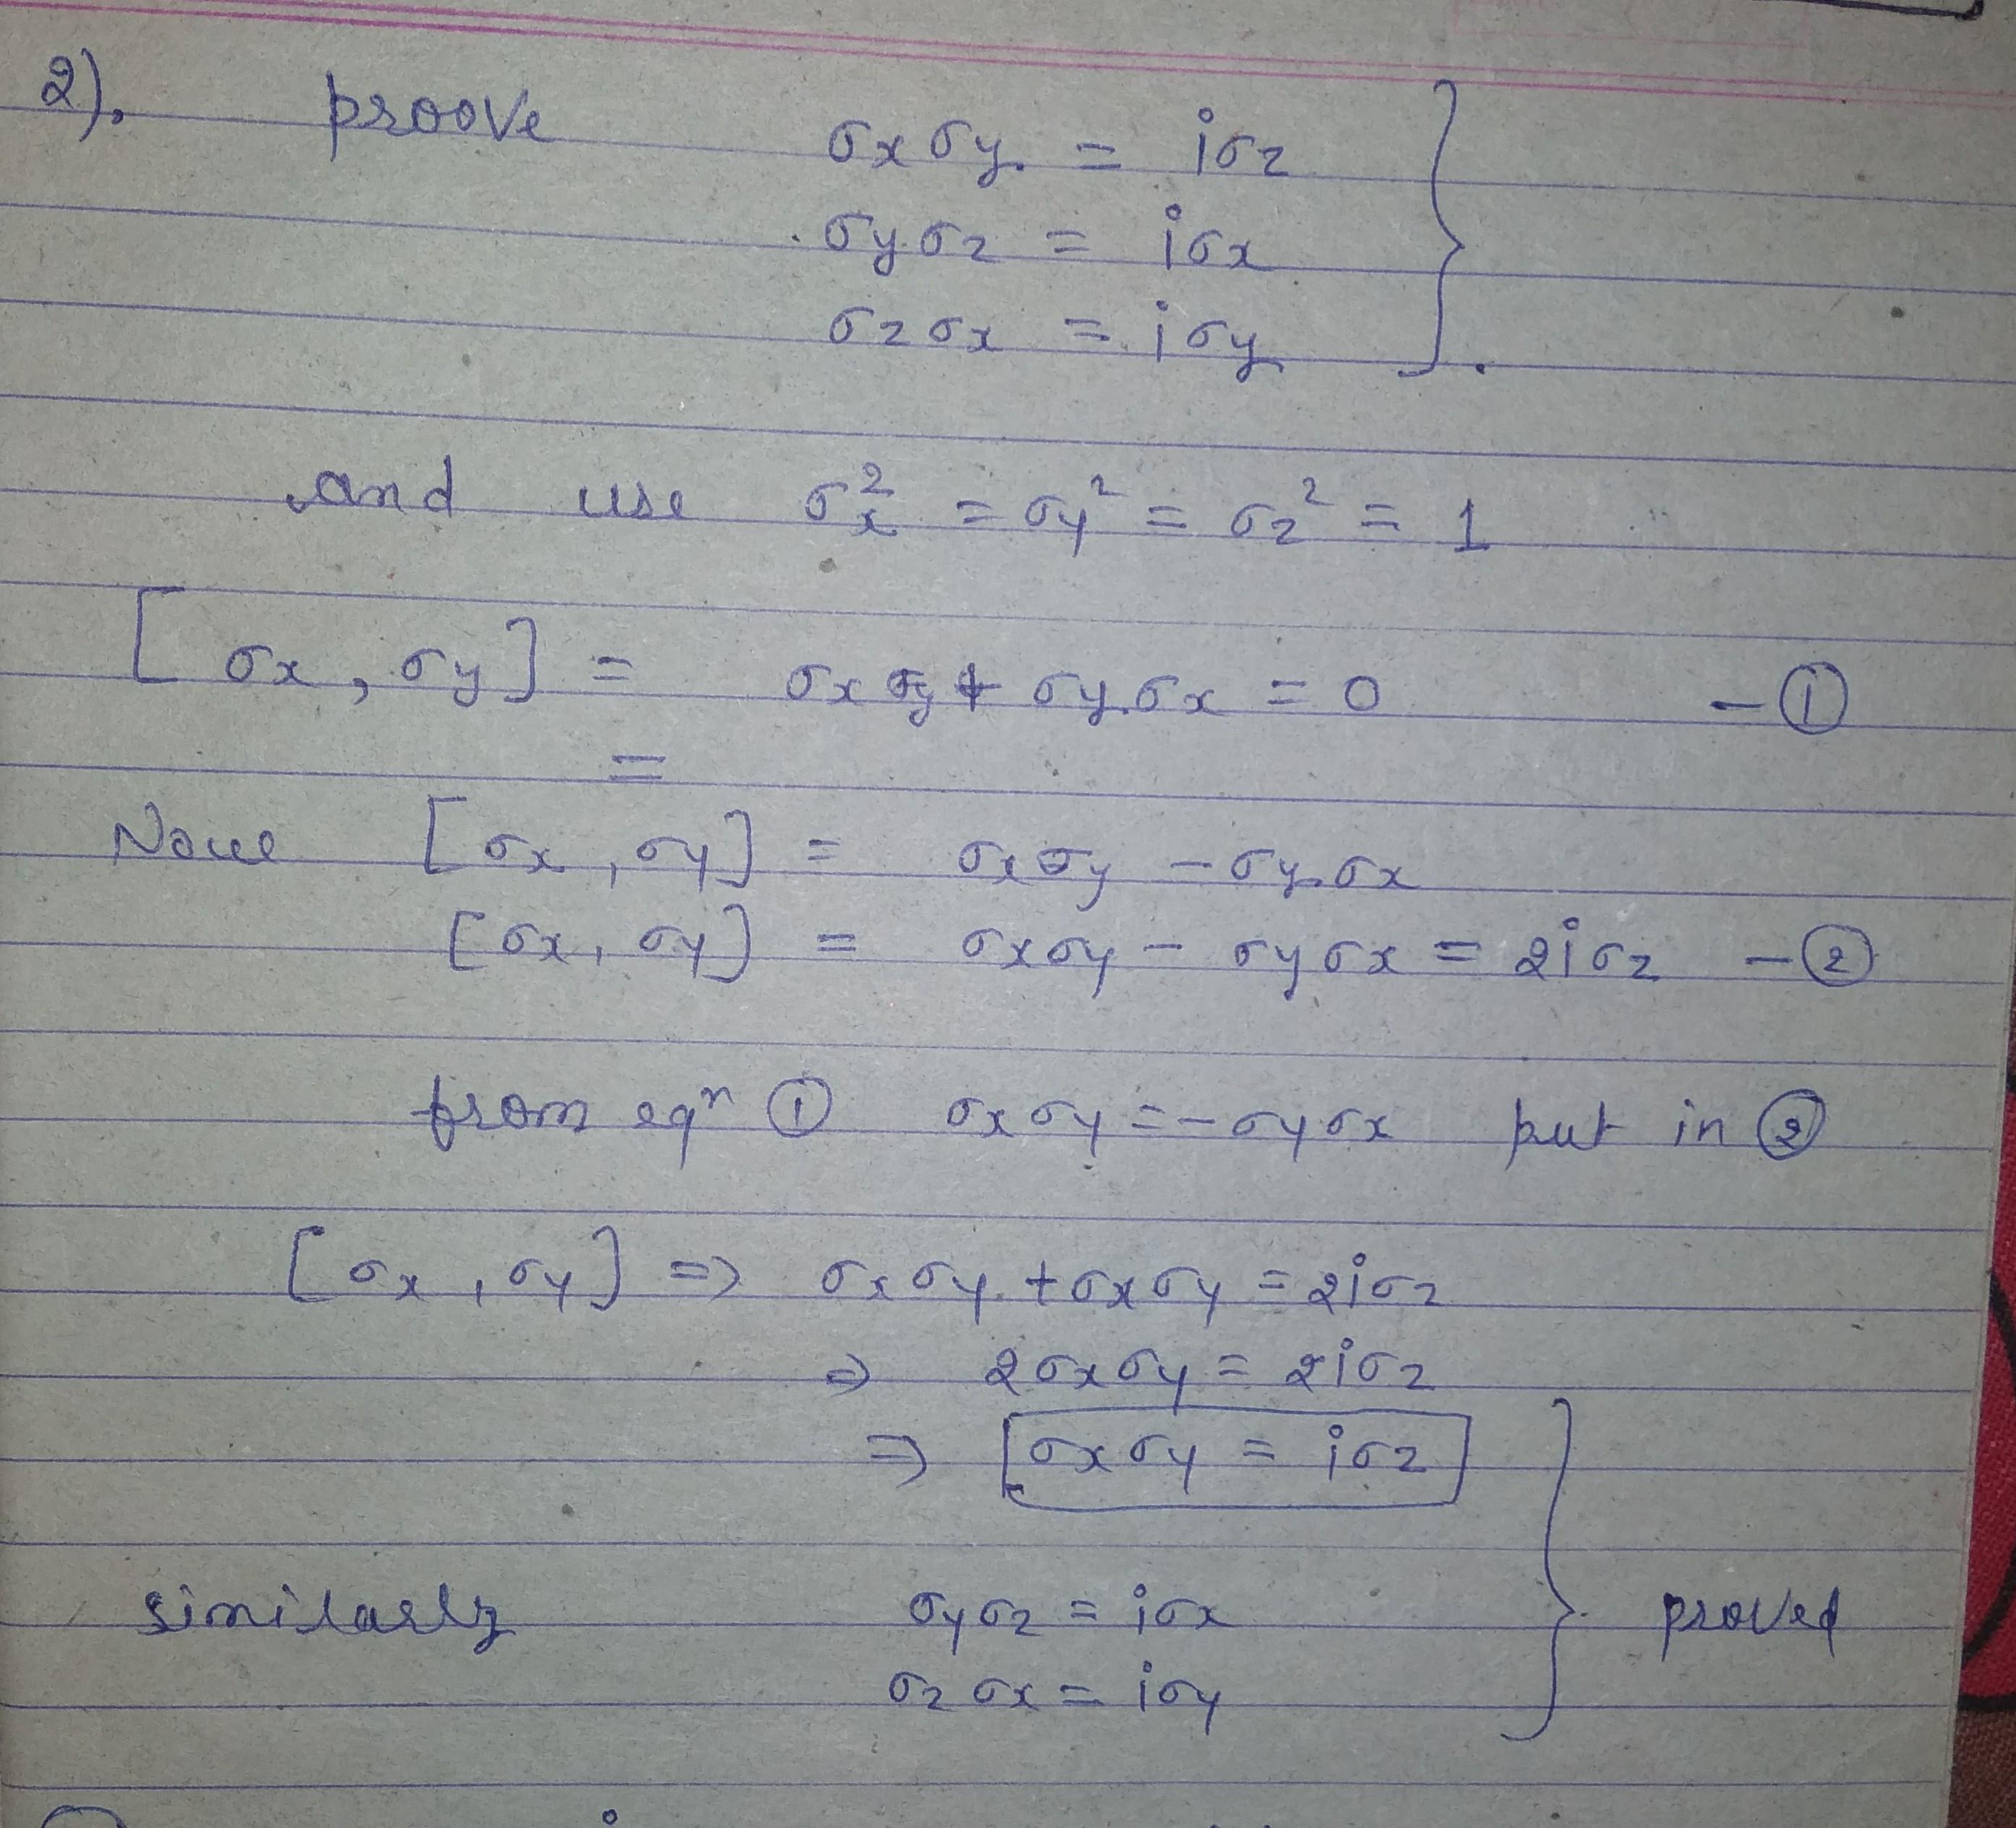 2). proove σx σy = iσz
σy σz = iσx
σz σx = iσy
and use σx² = σy² = σz² = 1
[σx, σy] = σx σy + σy σx = 0 - ①
=
Now [σx, σy] = σxσy - σy σx
[σx, σy] = σxσy - σyσx = 2iσz - ②
from eqⁿ ① σxσy = -σyσx put in ②
[σx, σy] ⇒ σxσy + σxσy = 2iσz
⇒ 2σxσy = 2iσz
⇒ σxσy = iσz
similarly σyσz = iσx proved
σz σx = iσy